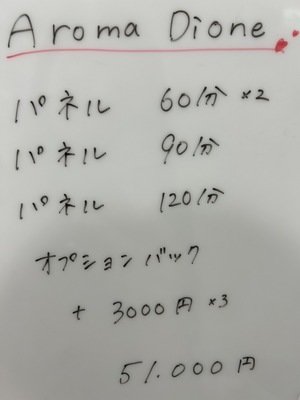 Aroma Dione
パネル 60分 ×2
パネル 90分
パネル 120分
オプションバック
+ 3000円 ×3
51.000円